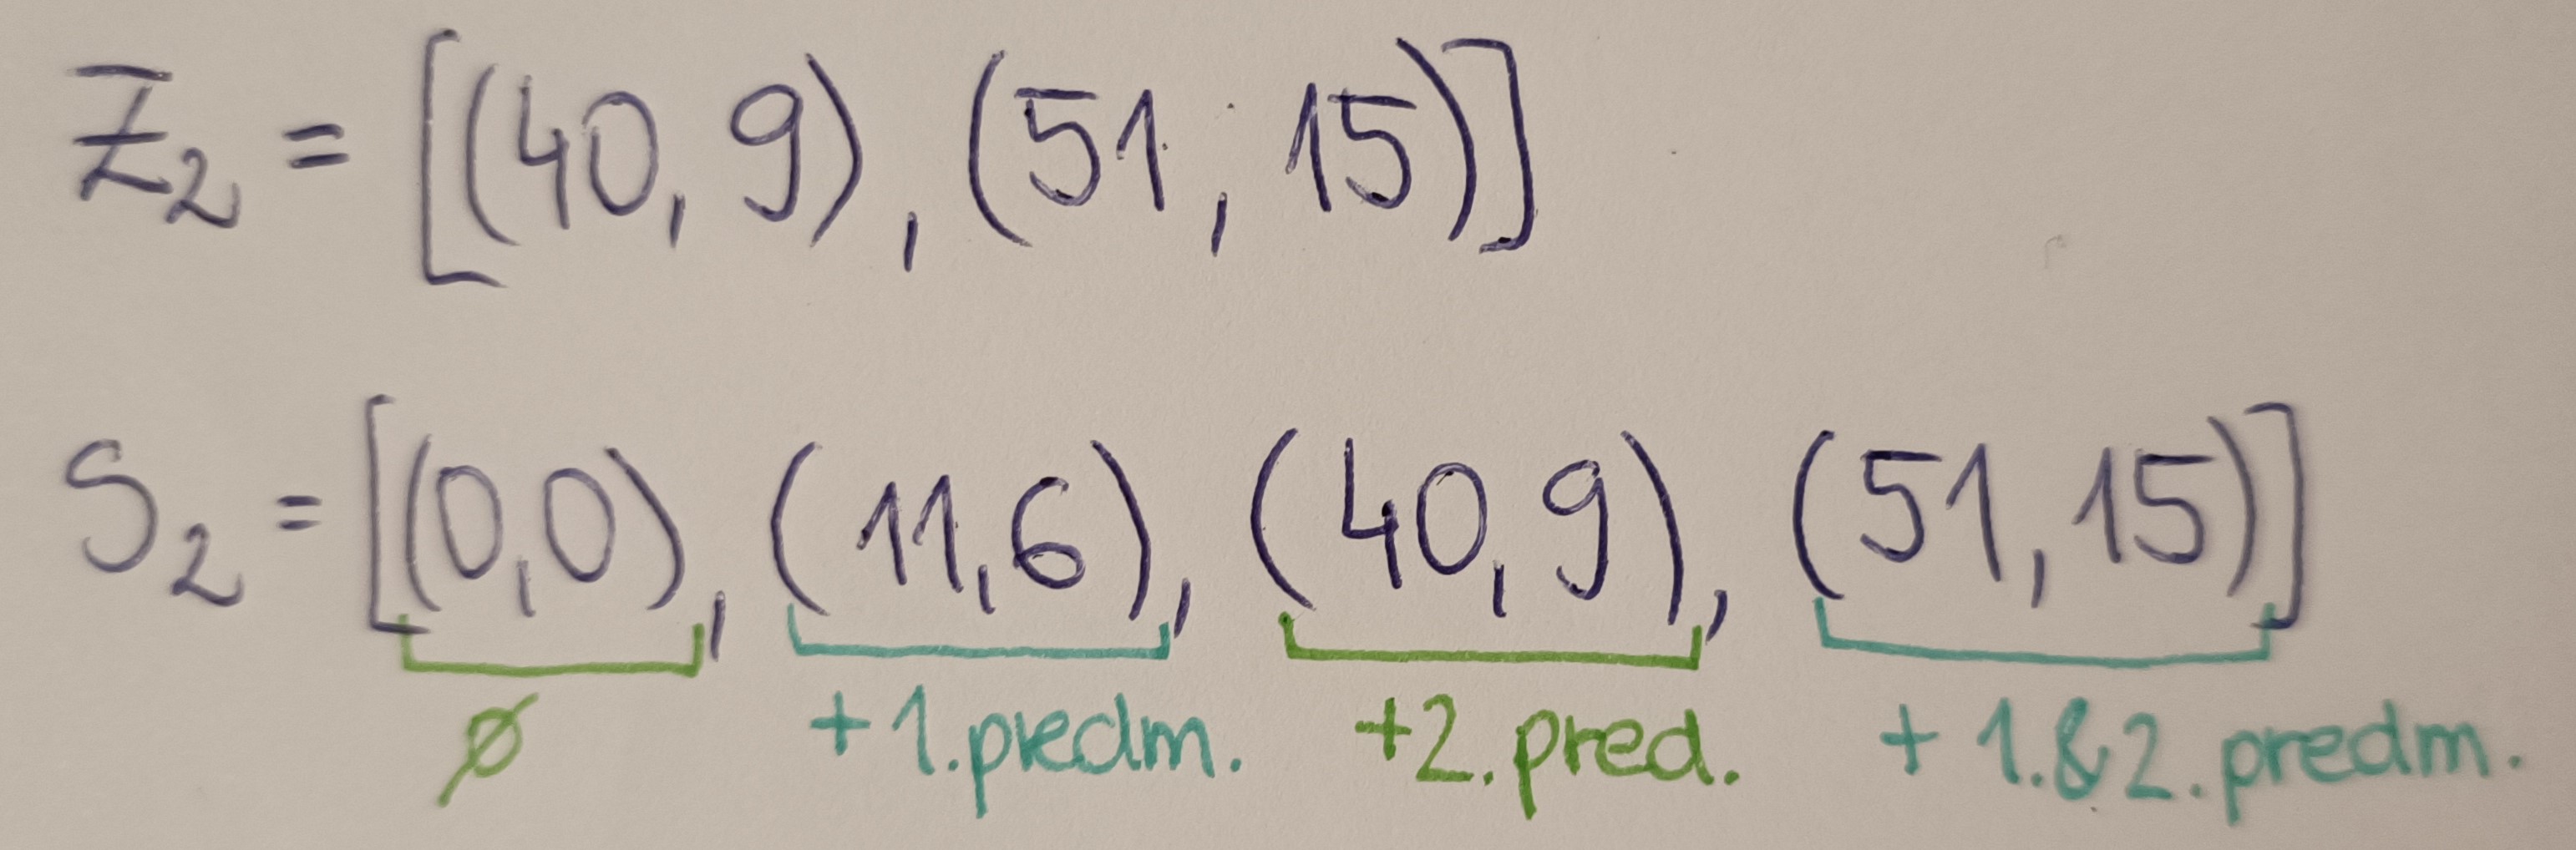 Z₂ = [(40, 9), (51, 15)]
S₂ = [(0,0), (11,6), (40,9), (51,15)]
∅ +1.predm. +2.pred. +1.&2.predm.